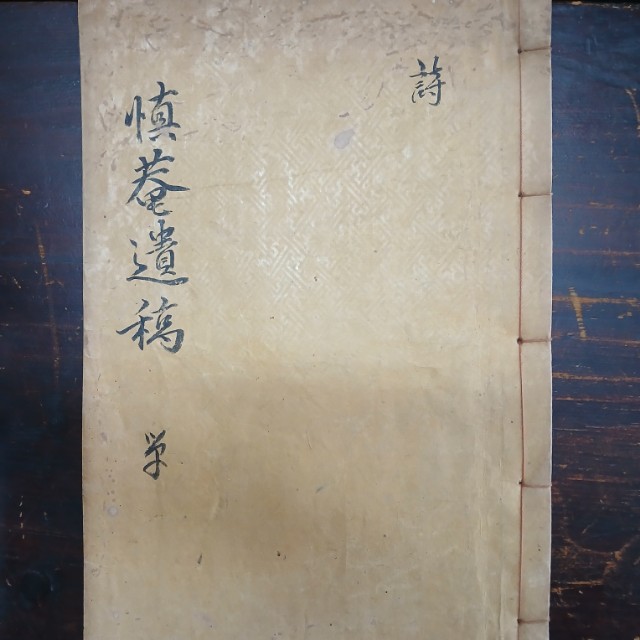 詩
慎菴遺稿 単